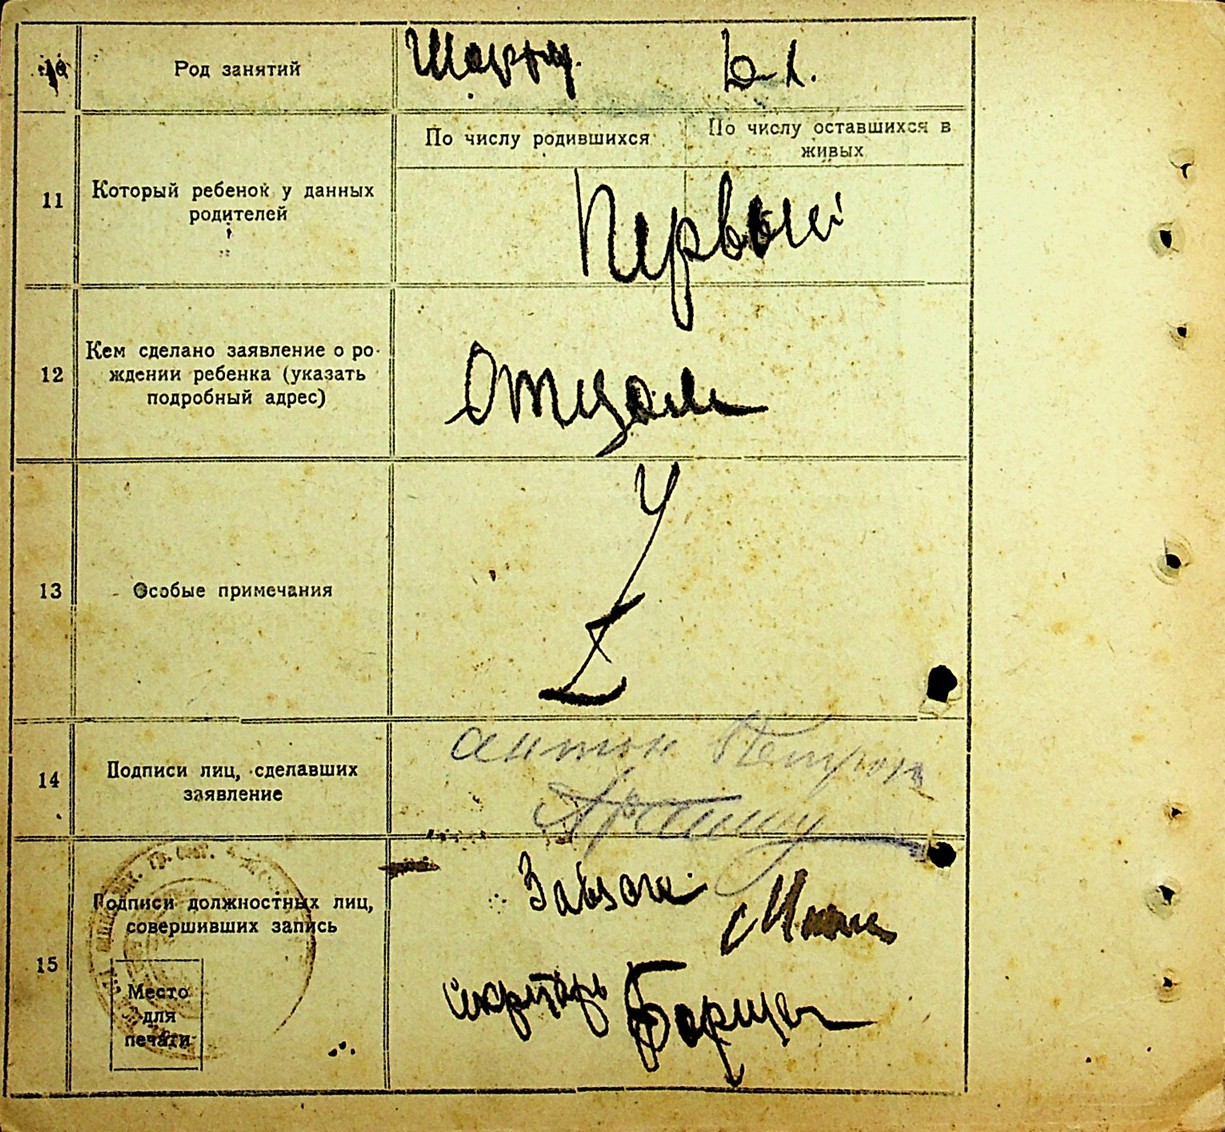 10 Род занятий
По числу родившихся По числу оставшихся в
живых
11 Который ребенок у данных
родителей
Первый
12 Кем сделано заявление о ро-
ждении ребенка (указать
подробный адрес)
Отцом
13 Особые примечания
14 Подписи лиц, сделавших
заявление
Антон
15 Подписи должностных лиц,
совершивших запись
Завзаги
секретарь
Место
для
печати